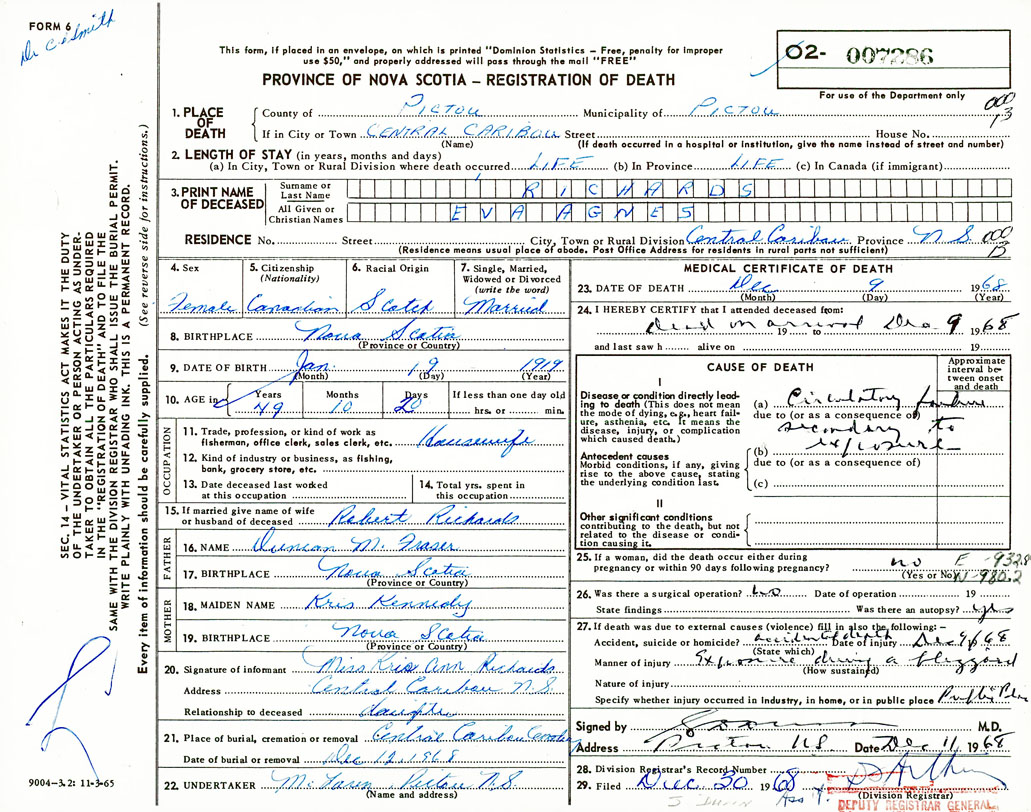 FORM 6
Dr C E Smith
This form, if placed in an envelope, on which is printed "Dominion Statistics – Free, penalty for improper
use $50," and properly addressed will pass through the mail "FREE"
PROVINCE OF NOVA SCOTIA – REGISTRATION OF DEATH
02- 007286
For use of the Department only
SEC. 14 – VITAL STATISTICS ACT MAKES IT THE DUTY
OF THE UNDERTAKER OR PERSON ACTING AS UNDER-
TAKER TO OBTAIN ALL THE PARTICULARS REQUIRED
IN THE "REGISTRATION OF DEATH" AND TO FILE THE
SAME WITH THE DIVISION REGISTRAR WHO SHALL ISSUE THE BURIAL PERMIT.
WRITE PLAINLY WITH UNFADING INK. THIS IS A PERMANENT RECORD.
Every item of information should be carefully supplied. (See reverse side for instructions.)
1. PLACE OF DEATH
County of PICTOU Municipality of PICTOU
000 13
If in City or Town CENTRAL CARIBOU Street House No.
(Name) (If death occurred in a hospital or institution, give the name instead of street and number)
2. LENGTH OF STAY (in years, months and days)
(a) In City, Town or Rural Division where death occurred LIFE (b) In Province LIFE (c) In Canada (if immigrant)
3. PRINT NAME OF DECEASED
Surname or Last Name RICHARDS
All Given or Christian Names EVA AGNES
RESIDENCE No. Street City, Town or Rural Division Central Caribou Province N S. 000 13
(Residence means usual place of abode. Post Office Address for residents in rural parts not sufficient)
4. Sex Female
5. Citizenship (Nationality) Canadian
6. Racial Origin Scotch
7. Single, Married, Widowed or Divorced (write the word) Married
8. BIRTHPLACE Nova Scotia
(Province or Country)
9. DATE OF BIRTH Jan. 19 1919
(Month) (Day) (Year)
10. AGE in Years 49 Months 10 Days 20 If less than one day old hrs. or min.
OCCUPATION
11. Trade, profession, or kind of work as
fisherman, office clerk, sales clerk, etc. Housewife
12. Kind of industry or business, as fishing,
bank, grocery store, etc.
13. Date deceased last worked
at this occupation
14. Total yrs. spent in
this occupation
15. If married give name of wife
or husband of deceased Robert Richards
FATHER
16. NAME Duncan M. Fraser
17. BIRTHPLACE Nova Scotia
(Province or Country)
MOTHER
18. MAIDEN NAME Kris Kennedy
19. BIRTHPLACE Nova Scotia
(Province or Country)
20. Signature of informant Miss Kris Ann Richards
Address Central Caribou N.S.
Relationship to deceased daughter
21. Place of burial, cremation or removal Central Caribou Cemetery
Date of burial or removal Dec 12, 1968
22. UNDERTAKER Pictou N.S.
(Name and address)
9004-3.2: 11-3-65
MEDICAL CERTIFICATE OF DEATH
23. DATE OF DEATH Dec 9 1968
(Month) (Day) (Year)
24. I HEREBY CERTIFY that I attended deceased from:
Dead on arrival Dec 9 1968
19 to
and last saw h alive on 19
CAUSE OF DEATH
Approximate interval between onset and death
I
Disease or condition directly lead-
ing to death (This does not mean
the mode of dying, e.g., heart fail-
ure, asthenia, etc. It means the
disease, injury, or complication
which caused death.)
(a) Circulatory failure
due to (or as a consequence of)
secondary to
exposure
Antecedent causes
Morbid conditions, if any, giving
rise to the above cause, stating
the underlying condition last.
(b)
due to (or as a consequence of)
(c)
II
Other significant conditions
contributing to the death, but not
related to the disease or condi-
tion causing it.
25. If a woman, did the death occur either during
pregnancy or within 90 days following pregnancy? no
(Yes or No)
E -932.8
N-980.2
26. Was there a surgical operation? no Date of operation 19
State findings Was there an autopsy? yes
27. If death was due to external causes (violence) fill in also the following:–
Accident, suicide or homicide? accident death Date of injury Dec 9 1968
(State which)
Manner of injury Exposure during a blizzard
(How sustained)
Nature of injury
Specify whether injury occurred in Industry, in home, or in public place
Signed by M.D.
Address Pictou N.S. Date Dec 11 1968
28. Division Registrar's Record Number
29. Filed Dec 30 1968
(Division Registrar)
DEPUTY REGISTRAR GENERAL